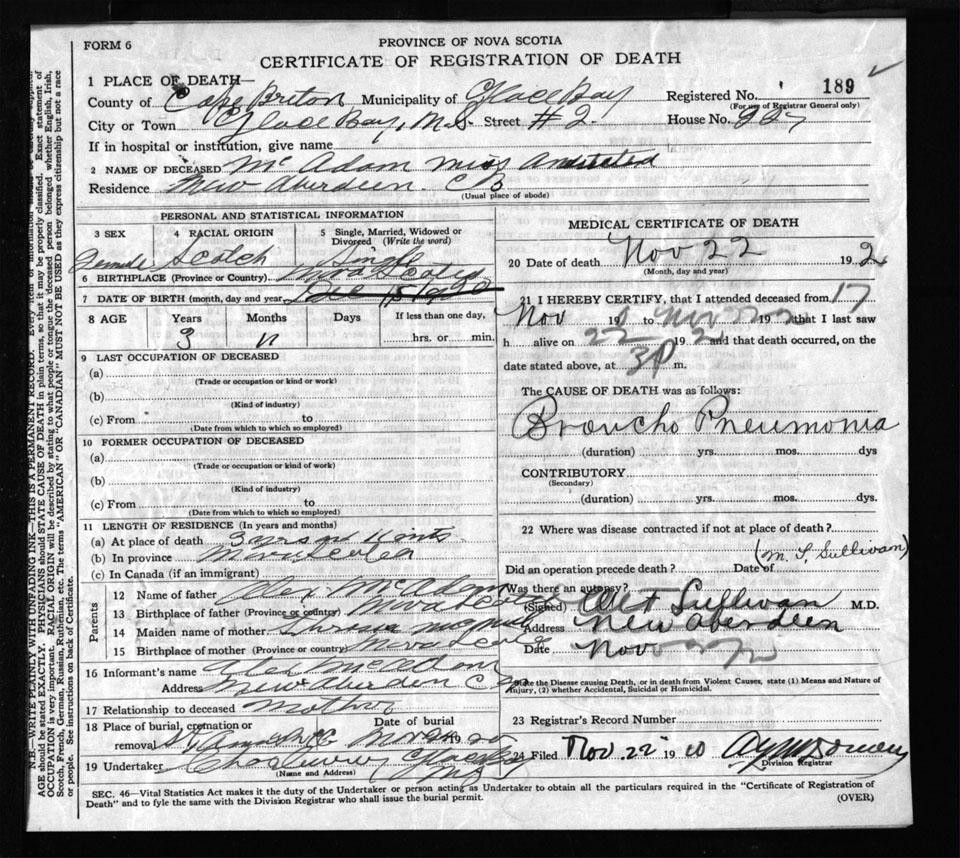 FORM 6
PROVINCE OF NOVA SCOTIA
CERTIFICATE OF REGISTRATION OF DEATH
1 PLACE OF DEATH—
County of Cape Briton Municipality of Glace Bay Registered No. 189
(For use of Registrar General only)
City or Town Glace Bay, N.S. Street #2. House No. 227
If in hospital or institution, give name
2 NAME OF DECEASED Mc Adam Miss
Residence New Aberdeen. C B
(Usual place of abode)
PERSONAL AND STATISTICAL INFORMATION
3 SEX 4 RACIAL ORIGIN 5 Single, Married, Widowed or Divorced (Write the word)
Female Scotch Single
6 BIRTHPLACE (Province or Country) Nova Scotia
7 DATE OF BIRTH (month, day and year) Dec
8 AGE Years Months Days If less than one day,
3 11 hrs. or min.
9 LAST OCCUPATION OF DECEASED
(a)
(Trade or occupation or kind or work)
(b)
(Kind of industry)
(c) From to
(Date from which to which so employed)
10 FORMER OCCUPATION OF DECEASED
(a)
(Trade or occupation or kind of work)
(b)
(Kind of industry)
(c) From to
(Date from which to which so employed)
11 LENGTH OF RESIDENCE (In years and months)
(a) At place of death 3 years 11
(b) In province Nova Scotia
(c) In Canada (if an immigrant)
Parents
12 Name of father Alex McAdam
13 Birthplace of father (Province or country) Nova Scotia
14 Maiden name of mother Theresa
15 Birthplace of mother (Province or country) Nova Scotia
16 Informant's name Alex McAdam
Address New Aberdeen C B
17 Relationship to deceased Mother
18 Place of burial, cremation or removal Date of burial
St 19
19 Undertaker
(Name and Address)
MEDICAL CERTIFICATE OF DEATH
20 Date of death Nov 22 19 2
(Month, day and year)
21 I HEREBY CERTIFY, that I attended deceased from 17
Nov 19 to Nov 19 that I last saw
h alive on 22 19 2 and that death occurred, on the
date stated above, at 3 P m.
The CAUSE OF DEATH was as follows:
Broncho Pneumonia
(duration) yrs. mos. dys
CONTRIBUTORY
(Secondary)
(duration) yrs. mos. dys.
22 Where was disease contracted if not at place of death?
(M. T. Sullivan)
Did an operation precede death? Date of
Was there an autopsy?
(Signed) Sullivan M.D.
Address New Aberdeen
Date Nov
State the Disease causing Death, or in death from Violent Causes, state (1) Means and Nature of
Injury, (2) whether Accidental, Suicidal or Homicidal.
23 Registrar's Record Number
24 Filed Nov. 22 19
Division Registrar
SEC. 46—Vital Statistics Act makes it the duty of the Undertaker or person acting as Undertaker to obtain all the particulars required in the "Certificate of Registration of
Death" and to fyle the same with the Division Registrar who shall issue the burial permit.
(OVER)
N.B.—WRITE PLAINLY WITH UNFADING INK—THIS IS A PERMANENT RECORD. Every item of information should be
AGE should be stated EXACTLY. PHYSICIANS should STATE CAUSE OF DEATH in plain terms, so that it may be properly classified. Exact statement of
OCCUPATION is very important. RACIAL ORIGIN will be described by stating to what people or tongue the deceased person belonged whether English, Irish,
Scotch, French, German, Russian, Ruthenian, etc. The terms "AMERICAN" OR "CANADIAN" MUST NOT BE USED as they express citizenship but not a race
or people. See instructions on back of Certificate.